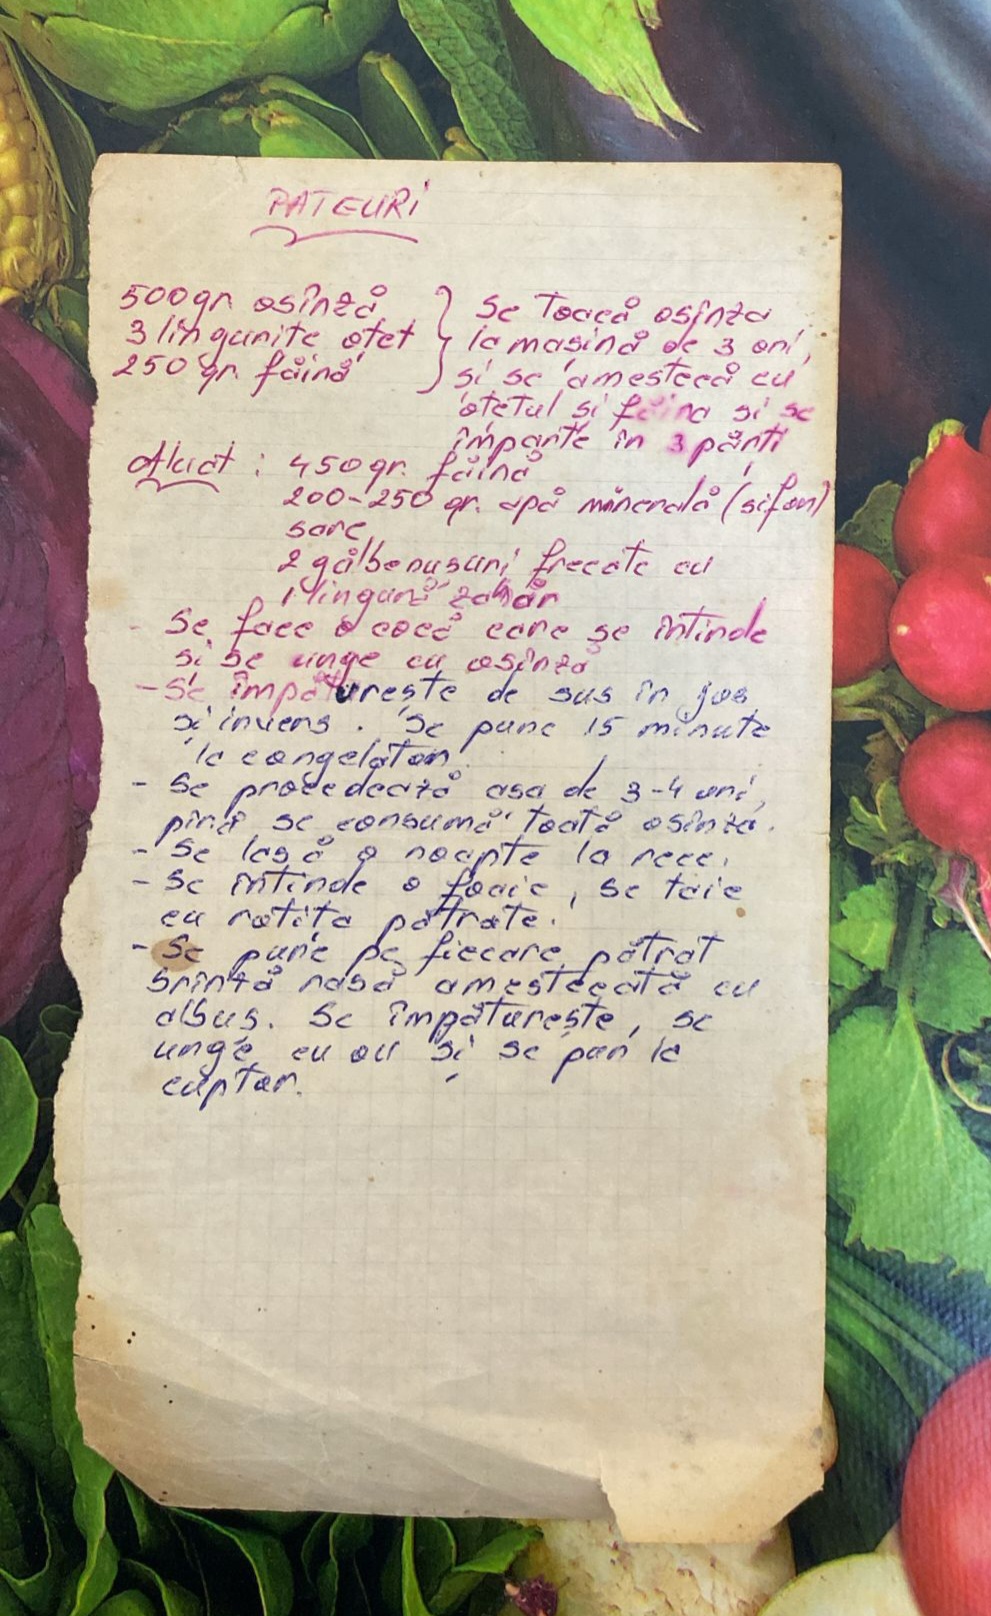 PATEURI
500 gr. osînză
3 lingurite oțet
250 gr. făină
Se toacă osînza
la mașină de 3 ori,
și se amestecă cu
oțetul și făina și se
împarte în 3 părți
Aluat : 450 gr. făină
200-250 gr. apă minerală (sifon)
sare
2 gălbenușuri frecate cu
1 lingură zahăr
- Se face o cocă care se întinde
și se unge cu osînză
- Se împăturește de sus în jos
și invers. Se pune 15 minute
la congelator.
- Se procedează așa de 3-4 ori,
pînă se consumă toată osînza.
- Se lasă o noapte la rece.
- Se întinde o foaie, se taie
cu rotița pătrate.
- Se pune pe fiecare pătrat
brînză rasă amestecată cu
albuș. Se împăturește, se
unge cu ou și se pun la
cuptor.